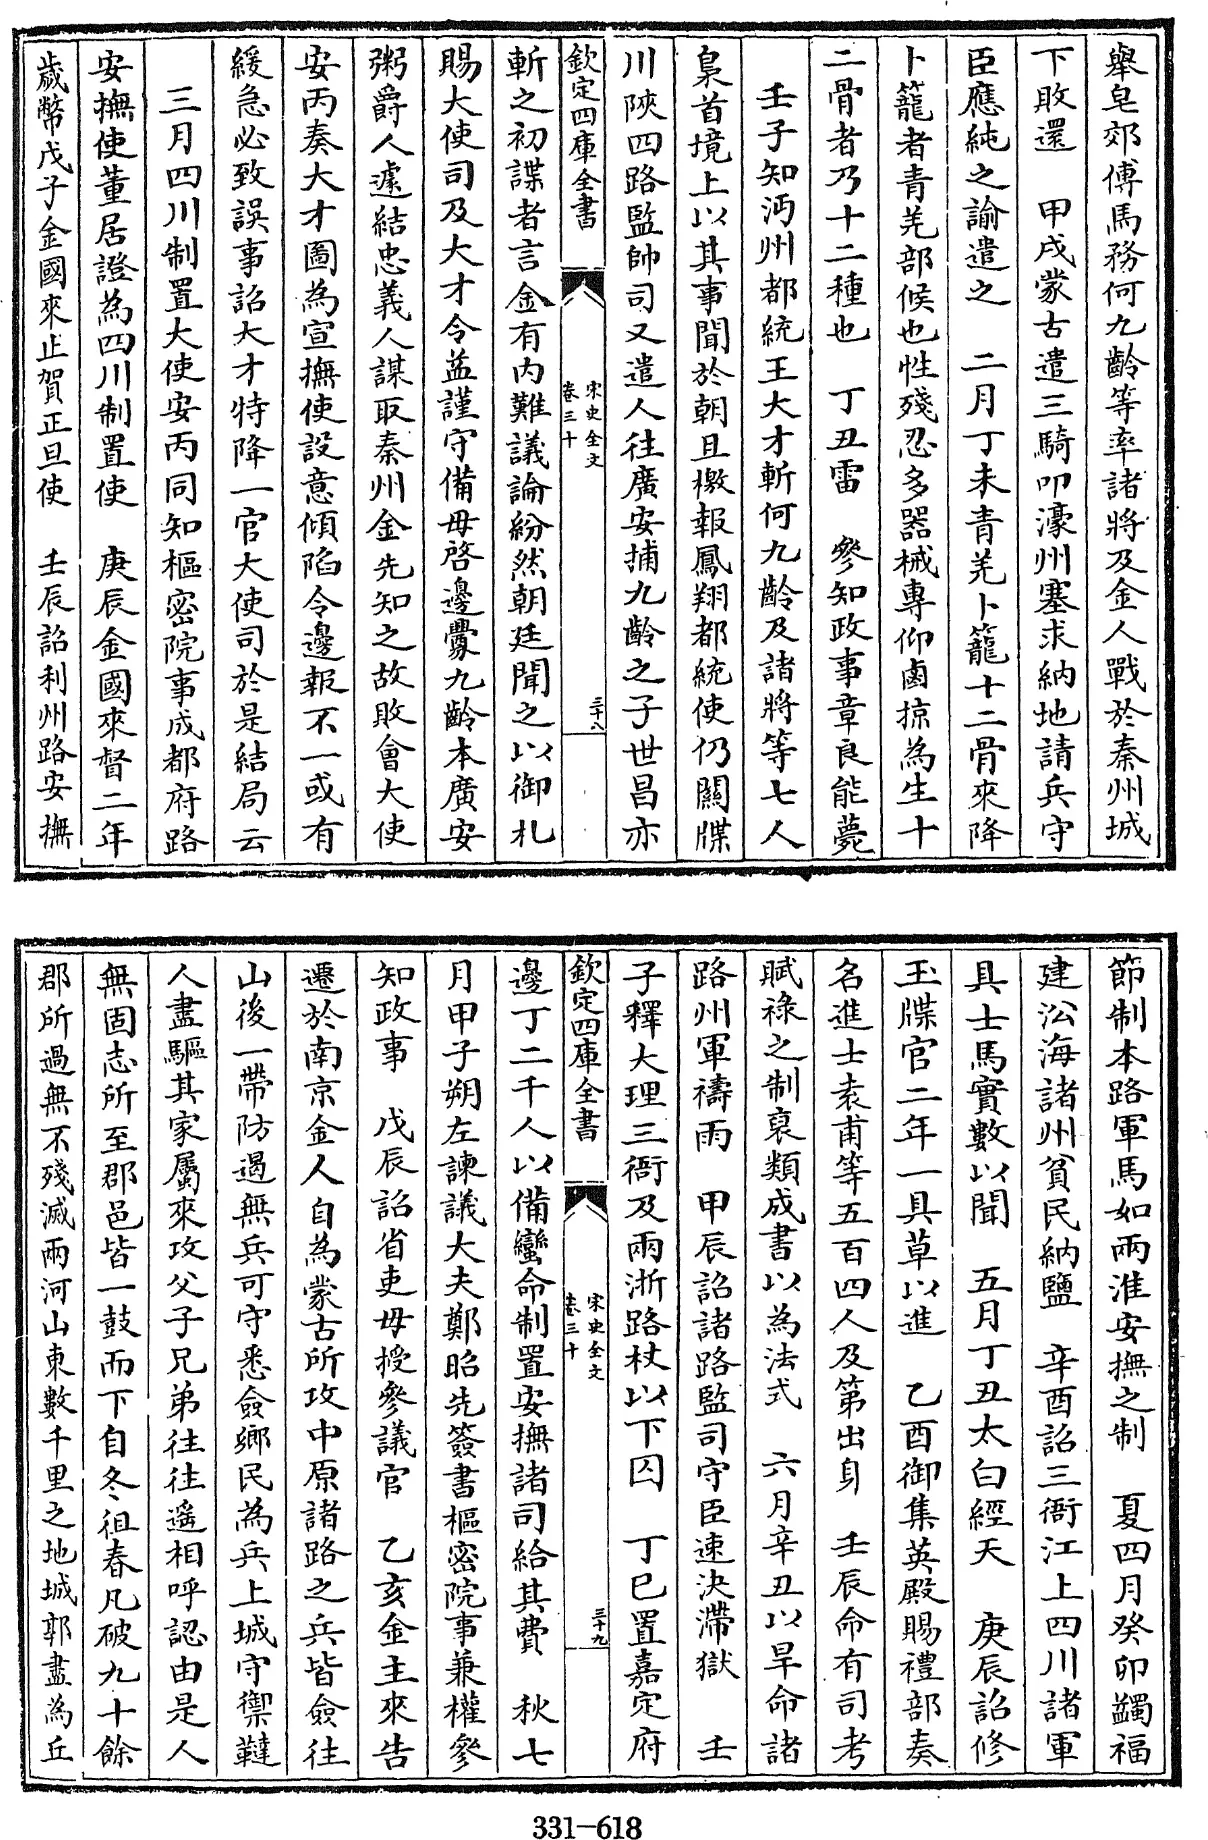 舉皂郊傅馬務何九齡等率諸將及金人戰於秦州城
下敗還　甲戌蒙古遣三騎叩濠州塞求納地請兵守
臣應純之諭遣之　二月丁未青羌卜籠十二骨來降
卜籠者青羌部候也性殘忍多器械專仰鹵掠為生十
二骨者乃十二種也　丁丑雷　參知政事章良能薨
壬子知沔州都統王大才斬何九齡及諸將等七人
梟首境上以其事聞於朝且檄報鳳翔都統使仍關牒
川陜四路監帥司又遣人往廣安捕九齡之子世昌亦
欽定四庫全書
宋史全文
卷三十
三十八
斬之初諜者言金有内難議論紛然朝廷聞之以御札
賜大使司及大才令益謹守備毋啓邊釁九齡本廣安
粥爵人遽結忠義人謀取秦州金先知之故敗會大使
安丙奏大才圖為宣撫使設意傾陷令邊報不一或有
緩急必致誤事詔大才特降一官大使司於是結局云
三月四川制置大使安丙同知樞密院事成都府路
安撫使董居證為四川制置使　庚辰金國來督二年
歲幣戊子金國來止賀正旦使　壬辰詔利州路安撫
節制本路軍馬如兩淮安撫之制　夏四月癸卯蠲福
建沿海諸州貧民納鹽　辛酉詔三衙江上四川諸軍
具士馬實數以聞　五月丁丑太白經天　庚辰詔修
玉牒官二年一具草以進　乙酉御集英殿賜禮部奏
名進士袁甫等五百四人及第出身　壬辰命有司考
賦祿之制裒類成書以為法式　六月辛丑以旱命諸
路州軍禱雨　甲辰詔諸路監司守臣速決滯獄　壬
子釋大理三衙及兩浙路杖以下囚　丁巳置嘉定府
欽定四庫全書
宋史全文
卷三十
三十九
邊丁二千人以備蠻命制置安撫諸司給其費　秋七
月甲子朔左諫議大夫鄭昭先簽書樞密院事兼權參
知政事　戊辰詔省吏毋授參議官　乙亥金主來告
遷於南京金人自為蒙古所攻中原諸路之兵皆僉往
山後一帶防遏無兵可守悉僉鄉民為兵上城守禦韃
人盡驅其家屬來攻父子兄弟往往遥相呼認由是人
無固志所至郡邑皆一鼓而下自冬徂春凡破九十餘
郡所過無不殘滅兩河山東數千里之地城郭盡為丘
331-618